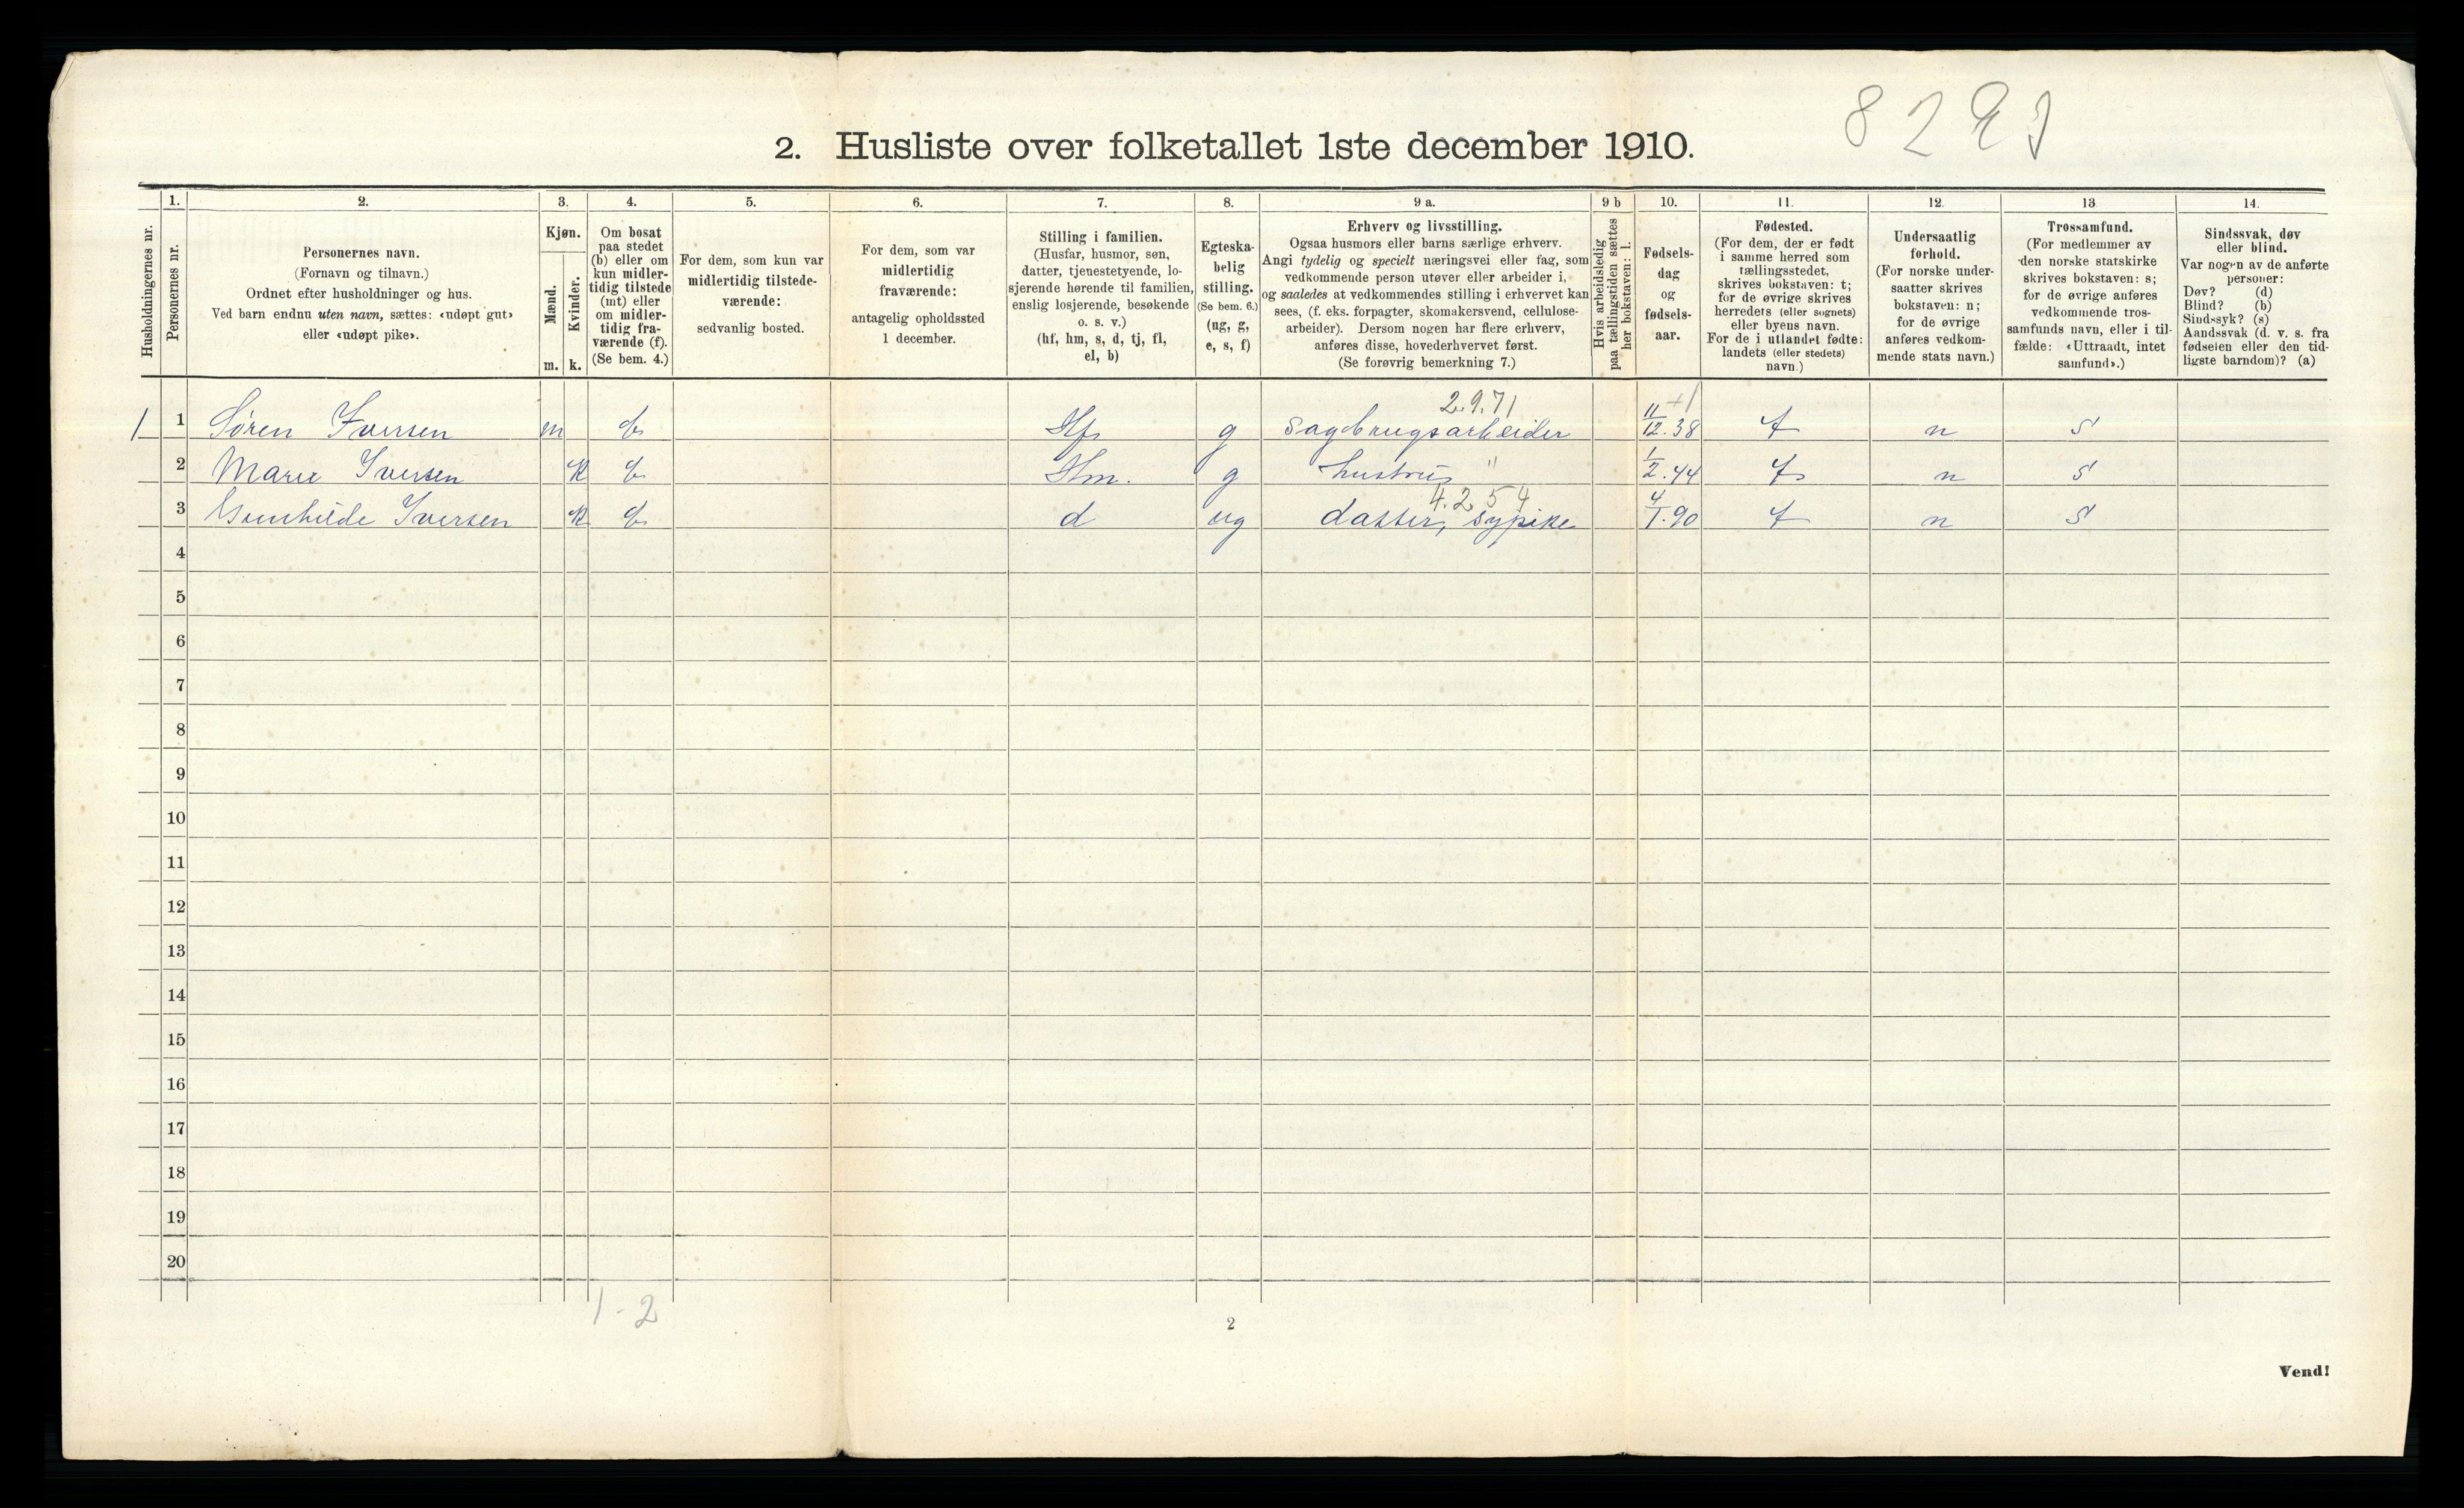 2. Husliste over folketallet 1ste december 1910.
Husholdningernes nr.
1.
Personernes nr.
2.
Personernes navn.
(Fornavn og tilnavn.)
Ordnet efter husholdninger og hus.
Ved barn endnu uten navn, sættes: «udøpt gut»
eller «udøpt pike».
3.
Kjøn.
Mænd.
m.
Kvinder.
k.
4.
Om bosat
paa stedet
(b) eller om
kun midler-
tidig tilstede
(mt) eller
om midler-
tidig fra-
værende (f).
(Se bem. 4.)
5.
For dem, som kun var
midlertidig tilstede-
værende:
sedvanlig bosted.
6.
For dem, som var
midlertidig
fraværende:
antagelig opholdssted
1 december.
7.
Stilling i familien.
(Husfar, husmor, søn,
datter, tjenestetyende, lo-
sjerende hørende til familien,
enslig losjerende, besøkende
o. s. v.)
(hf, hm, s, d, tj, fl,
el, b)
8.
Egteska-
belig
stilling.
(Se bem. 6.)
(ug, g,
e, s, f)
9 a.
Erhverv og livsstilling.
Ogsaa husmors eller barns særlige erhverv.
Angi tydelig og specielt næringsvei eller fag, som
vedkommende person utøver eller arbeider i,
og saaledes at vedkommendes stilling i erhvervet kan
sees, (f. eks. forpagter, skomakersvend, cellulose-
arbeider). Dersom nogen har flere erhverv,
anføres disse, hovederhvervet først.
(Se forøvrig bemerkning 7.)
9 b
Hvis arbeidsledig
paa tællingstiden sættes
her bokstaven: l.
10.
Fødsels-
dag
og
fødsels-
aar.
11.
Fødested.
(For dem, der er født
i samme herred som
tællingsstedet,
skrives bokstaven: t;
for de øvrige skrives
herredets (eller sognets)
eller byens navn.
For de i utlandet fødte:
landets (eller stedets)
navn.)
12.
Undersaatlig
forhold.
(For norske under-
saatter skrives
bokstaven: n;
for de øvrige
anføres vedkom-
mende stats navn.)
13
Trossamfund.
(For medlemmer av
den norske statskirke
skrives bokstaven: s;
for de øvrige anføres
vedkommende tros-
samfunds navn, eller i til-
fælde: «Uttraadt, intet
samfund».)
14.
Sindssvak, døv
eller blind.
Var nogen av de anførte
personer:
Døv? (d)
Blind? (b)
Sindssyk? (s)
Aandssvak (d. v. s. fra
fødselen eller den tid-
ligste barndom)? (a)
2.9.71
1 1 Søren Iversen m b Hf g Sagbrugsarbeider 11/12.38 t n s
2 Marie Iversen k b Hm. g hustru " 1/2.44 t n s
4.2 5 4
3 Gunhilde Iversen k b d ug datter, sypike 4/1.90 t n s
4
5
6
7
8
9
10
11
12
13
14
15
16
17
18
19
20
1-2
2
Vend!